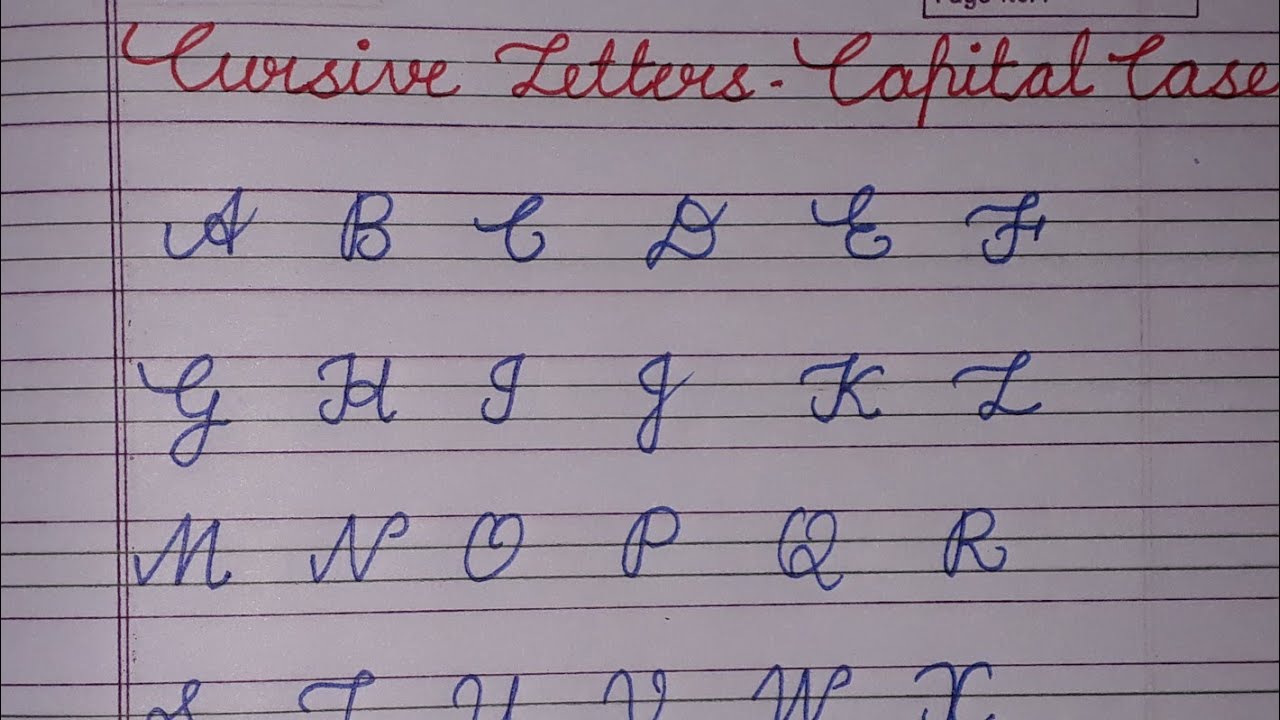 Cursive Letters - Capital Case
A B C D E F
G H I J K L
M N O P Q R
S T U V W X